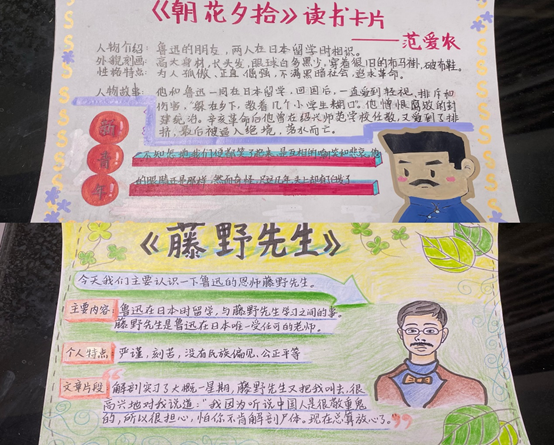 《朝花夕拾》读书卡片
——范爱农
人物介绍：鲁迅的朋友，两人在日本留学时相识。
外貌刻画：高大身材，长头发，眼球白多黑少，穿着很旧的布马褂，破布鞋。
性格特点：为人孤傲，正直倔强，不满黑暗社会，追求革命。
人物故事：他和鲁迅一同在日本留学，回国后，一直受到轻视，排斥和
伤害，"躲在乡下，教着几个小学生糊口。他憎恨腐败的封
建统治。辛亥革命后他曾在绍兴师范学校任教，又受到了排
挤，最后被逼入绝境，落水而亡。
新
青
年！
的眼睛还是那样，然而奇怪，只这几年，头上却有了白发了
《藤野先生》
今天我们主要认识一下鲁迅的恩师藤野先生。
主要内容
鲁迅在日本时留学，与藤野先生学习之间的事。
藤野先生是鲁迅在日本唯一受认可的老师。
个人特点
严谨，刻苦，没有民族偏见，公正平等
文章片段
"解剖实习了大概一星期，藤野先生又把我叫去，很
高兴地对我说道："我因为听说中国人是很敬重鬼
的，所以很担心，怕你不肯解剖尸体。现在总算放心了。"